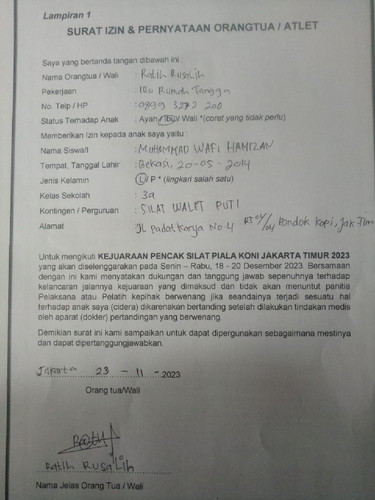 Lampiran 1
SURAT IZIN & PERNYATAAN ORANGTUA / ATLET
Saya yang bertanda tangan dibawah ini :
Nama Orangtua / Wali : Ratih Rusalih
Pekerjaan : Ibu Rumah Tangga
No. Telp / HP : 0899 3272 200
Status Terhadap Anak : Ayah/Ibu/ Wali *(coret yang tidak perlu)
Memberikan izin kepada anak saya yaitu :
Nama Siswa/i : MUHAMMAD WAFI HAMIZAN
Tempat, Tanggal Lahir : Bekasi, 20-05-2014
Jenis Kelamin : L/ P * (lingkari salah satu)
Kelas Sekolah : 3a
Kontingen / Perguruan : SILAT WALET PUTI
Alamat : Jl padat karya No.4 Pondok Kopi, Jak Tim
Untuk mengikuti KEJUARAAN PENCAK SILAT PIALA KONI JAKARTA TIMUR 2023
yang akan diselenggarakan pada Senin – Rabu, 18 - 20 Desember 2023. Bersamaan
dengan ini kami menyatakan dukungan dan tanggung jawab sepenuhnya terhadap
kelancaran jalannya kejuaraan yang dimaksud dan tidak akan menuntut panitia
Pelaksana atau Pelatih kepihak berwenang jika seandainya terjadi sesuatu hal
terhadap anak saya (cidera) dikarenakan bertanding setelah dilakukan tindakan medis
oleh aparat (dokter) pertandingan yang berwenang.
Demikian surat ini kami sampaikan untuk dapat dipergunakan sebagaimana mestinya
dan dapat dipertanggungjawabkan.
Jakarta 23 - 11 - 2023
Orang tua/Wali
Ratih
Ratih Rusalih
Nama Jelas Orang Tua / Wali